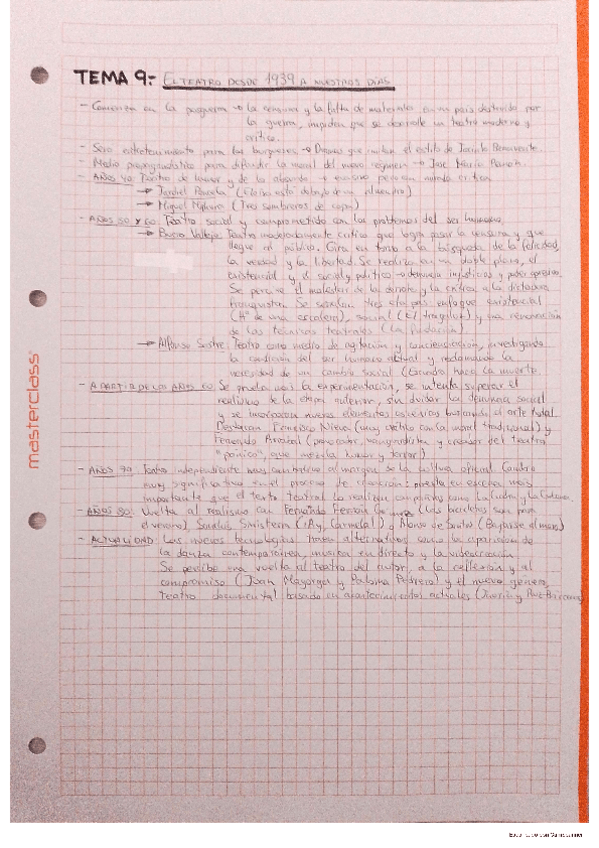 TEMA 9.- EL TEATRO DESDE 1939 A NUESTROS DÍAS
- Comienza en la posguerra → la censura y la falta de materiales en un país destruido por
la guerra, impiden que se desarrolle un teatro moderno y
crítico.
- Será entretenimiento para los burgueses → Dramas que imitan el estilo de Jacinto Benavente.
- Medio propagandístico para difundir la moral del nuevo régimen → José María Pemán.
- AÑOS 40: Teatro de humor y de lo absurdo → evasivo pero con mirada crítica
→ Jardiel Poncela (Eloísa está debajo de un almendro)
→ Miguel Mihura (Tres sombreros de copa)
- AÑOS 50 Y 60: Teatro social y comprometido con los problemas del ser humano.
→ Buero Vallejo: Teatro moderadamente crítico que logra pasar la censura y que
llegue al público. Gira en torno a la búsqueda de la felicidad,
la verdad y la libertad. Se realiza en un doble plano, el
existencial y el social y político → denuncia injusticias y poder opresor.
Se percibe el malestar de la derrota y la crítica a la dictadura
franquista. Se señalan tres etapas: enfoque existencial
(Hª de una escalera), social (El tragaluz) y una renovación
de las técnicas teatrales (La fundación)
→ Alfonso Sastre: Teatro como medio de agitación y concienciación, investigando
la condición del ser humano actual y reclamando la
necesidad de un cambio social (Escuadra hacia la muerte)
- A PARTIR DE LOS AÑOS 60: Se produce la experimentación, se intenta superar el
realismo de la etapa anterior, sin olvidar la denuncia social
y se incorporan nuevos elementos escénicos buscando el arte total.
Destacan Francisco Nieva (muy crítico con la moral tradicional) y
Fernando Arrabal (provocador, vanguardista y creador del teatro
"pánico", que mezcla humor y terror)
- AÑOS 70: Teatro independiente muy combativo al margen de la cultura oficial. Cambio
muy significativo en el proceso de creación: puesta en escena más
importante que el texto teatral. Lo realizan compañías como La Cubana,
- AÑOS 80: Vuelta al realismo con Fernando Fernán Gómez (Las bicicletas son para
el verano), Sanchis Sinisterra (¡Ay, Carmela!) o Alonso de Santos (Bajarse al moro)
- ACTUALIDAD: Las nuevas tecnologías traen alternativas como la aparición de
la danza contemporánea, música en directo y la videocreación.
Se percibe una vuelta al teatro del autor, a la reflexión y al
compromiso (Juan Mayorga y Paloma Pedrero) y el nuevo género,
teatro documental basado en acontecimientos actuales
masterclass